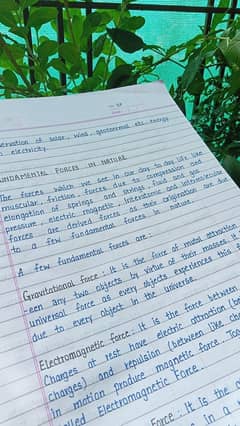 servation of solar, wind, geothermal etc energy
electricity.
FUNDAMENTAL FORCES IN NATURE
The forces which we see in our day to day life like
muscular, friction, forces due to compression and
elongation of springs and strings, fluid and gas
pressure, electric, magnetic, interatomic and intermolecular
forces are derived forces as their originations are due
to a few fundamental forces in nature.
A few fundamental forces are:
Gravitational force: it is the force of mutual attraction
-een any two objects by virtue of their masses. It
universal force as every objects experiences this
due to every object in the universe.
Electromagnetic force: it is the force between
charges at rest have electric attraction (bet
charges) and repulsion (between like char
in motion produce magnetic force. Toge
lled Electromagnetic Force.
Force: It is the
s in a